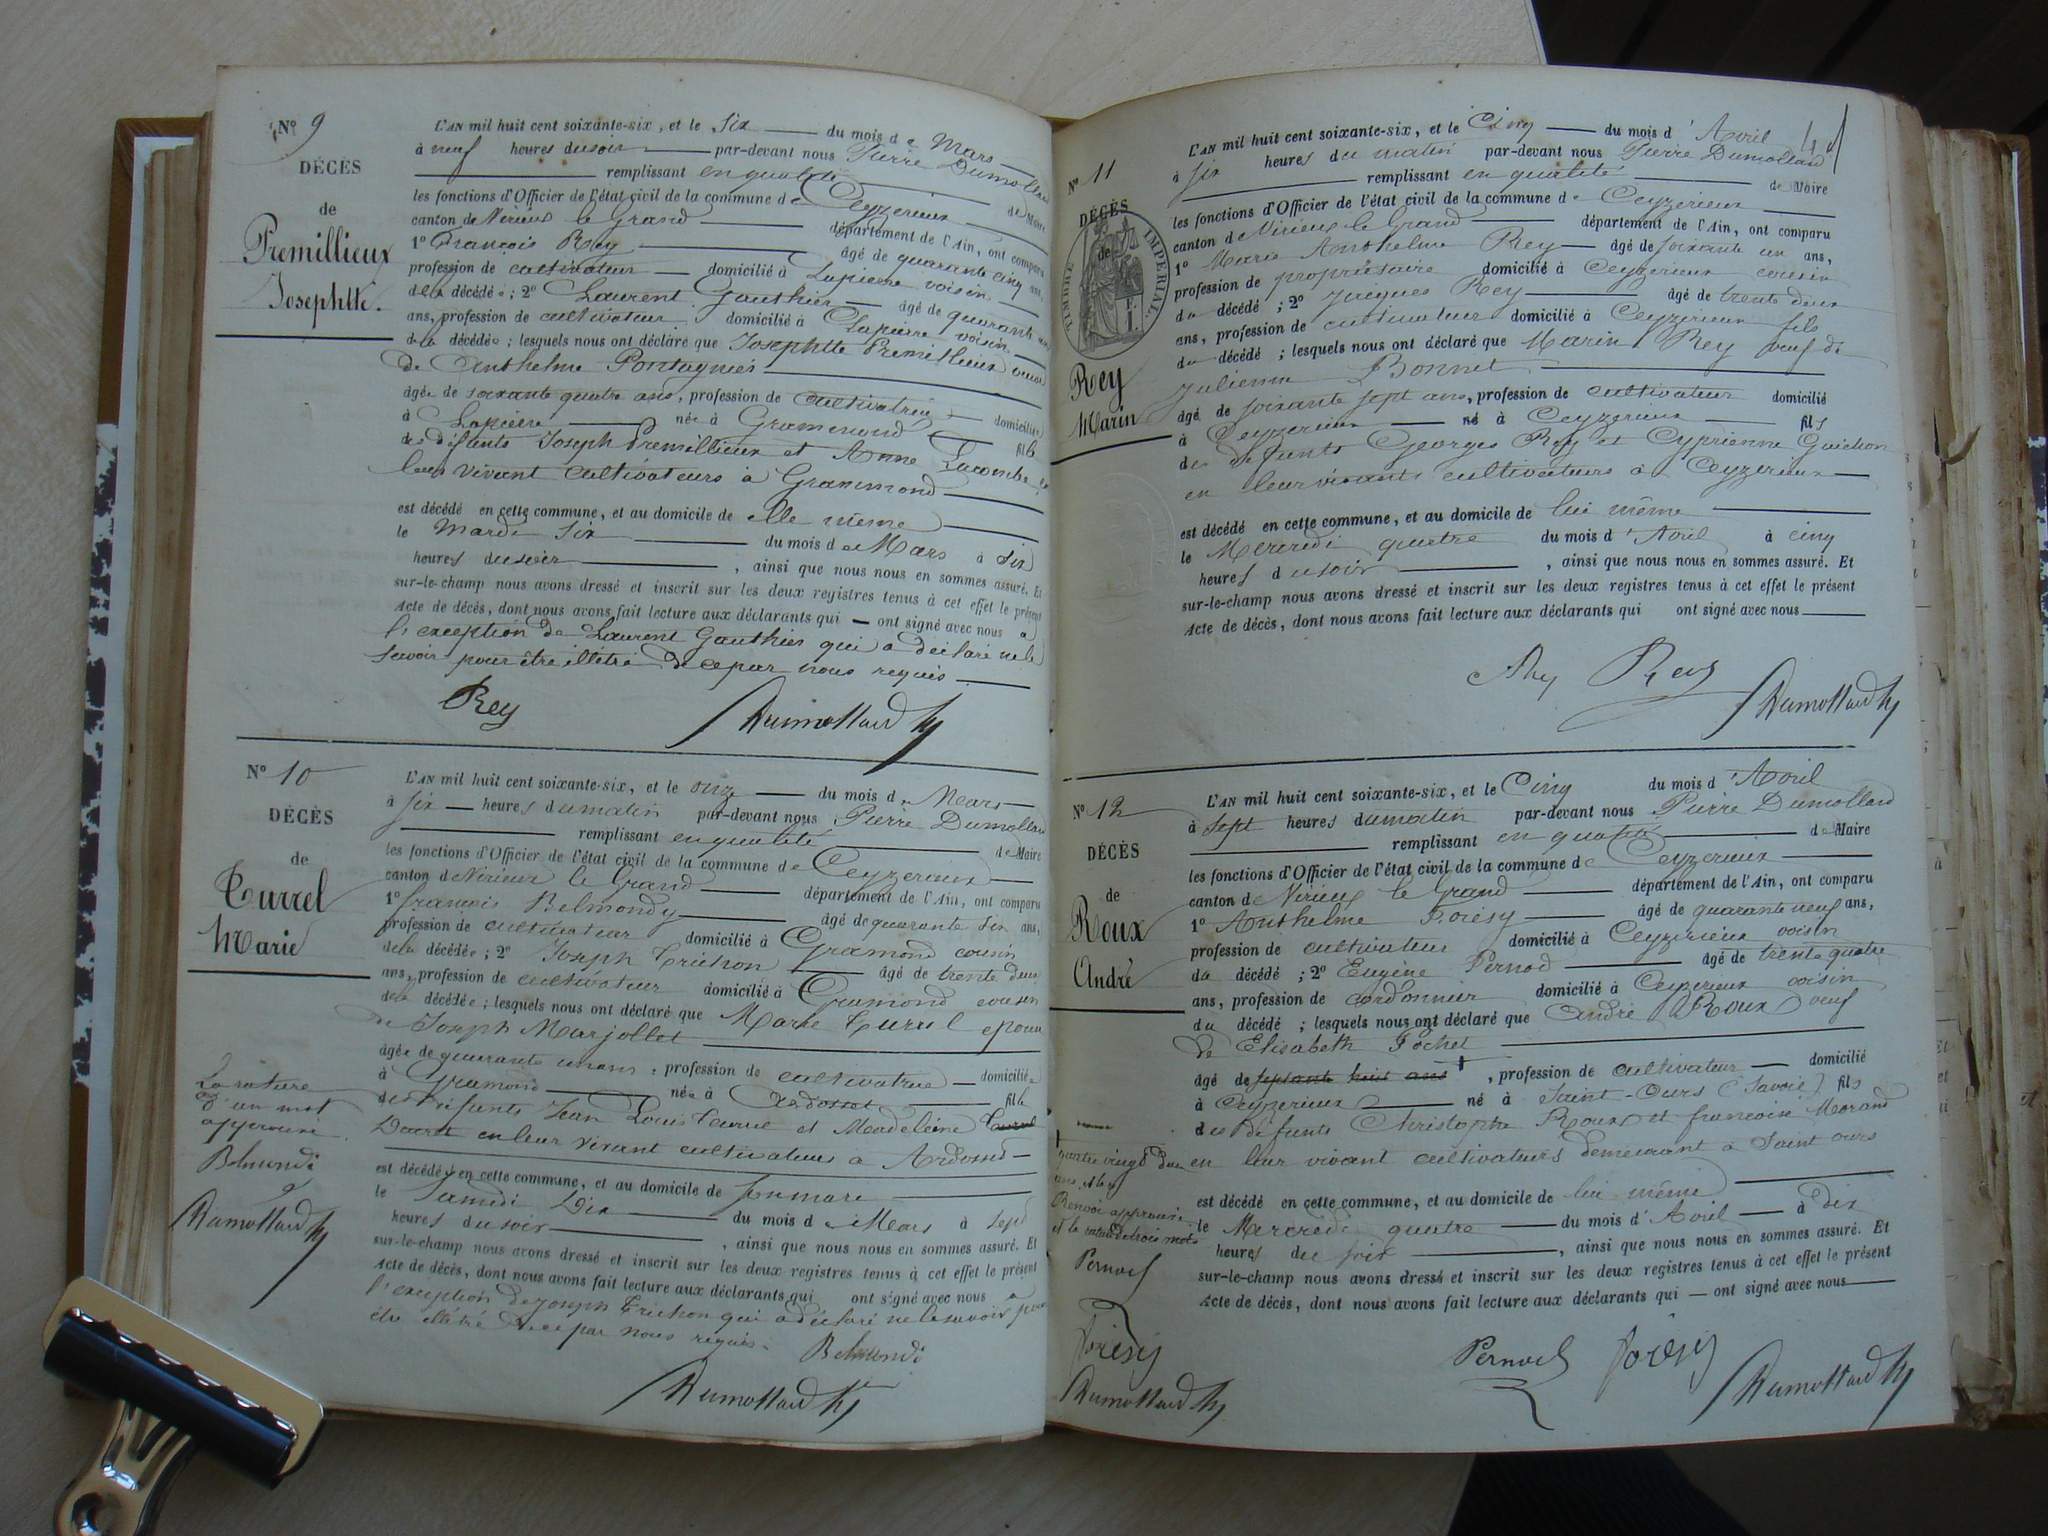 N° 9
DÉCÈS
de
Premillieux
Josephtte.
L'AN mil huit cent soixante-six, et le Six du mois de Mars
à neuf heures du soir par-devant nous Pierre Dumollard
remplissant en qualité de Maire
les fonctions d'Officier de l'état civil de la commune de Ceyzerieux
canton de Virieux le Grand département de l'Ain, ont comparu
1° François Rey âgé de quarante cinq ans,
profession de cultivateur domicilié à Lapierre voisin
de la décédée ; 2° Laurent Gauthier âgé de quarante
ans, profession de cultivateur domicilié à Lapierre voisin
de la décédée ; lesquels nous ont déclaré que Josephtte Premillieux veuve
de Anthelme Pontagnies
âgée de soixante quatre ans, profession de cultivatrice domiciliée
à Lapierre née à Grammond fille
des défunts Joseph Premillieux et Anne Lacombe en
leur vivant cultivateurs à Grammond
est décédé en cette commune, et au domicile de elle même
le Mardi Six du mois de Mars à Six
heures du soir , ainsi que nous nous en sommes assuré. Et
sur-le-champ nous avons dressé et inscrit sur les deux registres tenus à cet effet le présent
Acte de décès, dont nous avons fait lecture aux déclarants qui — ont signé avec nous a
l'exception de Laurent Gauthier qui a déclaré ne le
savoir pour être illétré de ce par nous requis
Rey Dumollard
N° 10
DÉCÈS
de
Turrel
Marie
L'AN mil huit cent soixante-six, et le onze du mois de Mars
à six heures du matin par-devant nous Pierre Dumollard
remplissant en qualité de Maire
les fonctions d'Officier de l'état civil de la commune de Ceyzerieux
canton de Virieux le Grand département de l'Ain, ont comparu
1° françois Belmondy âgé de quarante six ans,
profession de cultivateur domicilié à Gramond cousin
de la décédée ; 2° Joseph Trichon âgé de trente deux
ans, profession de cultivateur domicilié à Gramond cousin
de la décédée ; lesquels nous ont déclaré que Marie Turrel epouse
de Joseph Marjollet
âgée de quarante un ans , profession de cultivatrice domiciliée
à Gramond née à Ardosset fille
des défunts Jean Louis Turrel et Madeleine Turrel
en leur vivant cultivateurs a
est décédé en cette commune, et au domicile de son mari
le Samedi Dix du mois de Mars à Sept
heures du soir , ainsi que nous nous en sommes assuré. Et
sur-le-champ nous avons dressé et inscrit sur les deux registres tenus à cet effet le présent
Acte de décès, dont nous avons fait lecture aux déclarants qui ont signé avec nous a
l'exception de Joseph Trichon qui a déclaré ne le savoir pour
être illétré de ce par nous requis.
Belmondi
Dumollard
La rature
d'un mot
approuvé
Belmondi
Dumollard
N° 11
DÉCÈS
de
TIMBRE IMPERIAL
Rey
Marin
L'AN mil huit cent soixante-six, et le Cinq du mois d'Avril
à six heures du matin par-devant nous Pierre Dumollard
remplissant en qualité de Maire
les fonctions d'Officier de l'état civil de la commune de Ceyzerieux
canton de Virieux le Grand département de l'Ain, ont comparu
1° Marie Anthelme Rey âgé de soixante un ans,
profession de propriétaire domicilié à Ceyzerieux cousin
du décédé ; 2° Jacques Rey âgé de trente deux
ans, profession de cultivateur domicilié à Ceyzerieux fils
du décédé ; lesquels nous ont déclaré que Marin Rey veuf de
Julienne Bonnet
âgé de soixante sept ans, profession de cultivateur domicilié
à Ceyzerieux né à Ceyzerieux fils
des défunts Georges Rey et Cyprienne Guichon
en leur vivants cultivateurs à Ceyzerieux
est décédé en cette commune, et au domicile de lui même
le Mercredi quatre du mois d'Avril à cinq
heures du soir , ainsi que nous nous en sommes assuré. Et
sur-le-champ nous avons dressé et inscrit sur les deux registres tenus à cet effet le présent
Acte de décès, dont nous avons fait lecture aux déclarants qui ont signé avec nous
Rey Rey Dumollard
N° 12
DÉCÈS
de
Roux
André
L'AN mil huit cent soixante-six, et le Cinq du mois d'Avril
à sept heures du matin par-devant nous Pierre Dumollard
remplissant en qualité de Maire
les fonctions d'Officier de l'état civil de la commune de Ceyzerieux
canton de Virieux le Grand département de l'Ain, ont comparu
1° Anthelme âgé de quarante neuf ans,
profession de cultivateur domicilié à Ceyzerieux voisin
du décédé ; 2° Eugène Pernod âgé de trente quatre
ans, profession de cordonnier domicilié à Ceyzerieux voisin
du décédé ; lesquels nous ont déclaré que André Roux veuf
de Elisabeth Pochet
âgé de septante huit ans , profession de cultivateur domicilié
à Ceyzerieux né à Saint-Ours (Savoie) fils
des défunts Christophe Roux et françoise Morand
en leur vivant cultivateurs demeurant à Saint ours
est décédé en cette commune, et au domicile de lui même
le Mercredi quatre du mois d'Avril à dix
heures du soir , ainsi que nous nous en sommes assuré. Et
sur-le-champ nous avons dressé et inscrit sur les deux registres tenus à cet effet le présent
Acte de décès, dont nous avons fait lecture aux déclarants qui — ont signé avec nous
Pernod Dumollard
quatre vingt deux
ans
Renvoi approuvé
et la rature de trois mots
Pernod
Dumollard